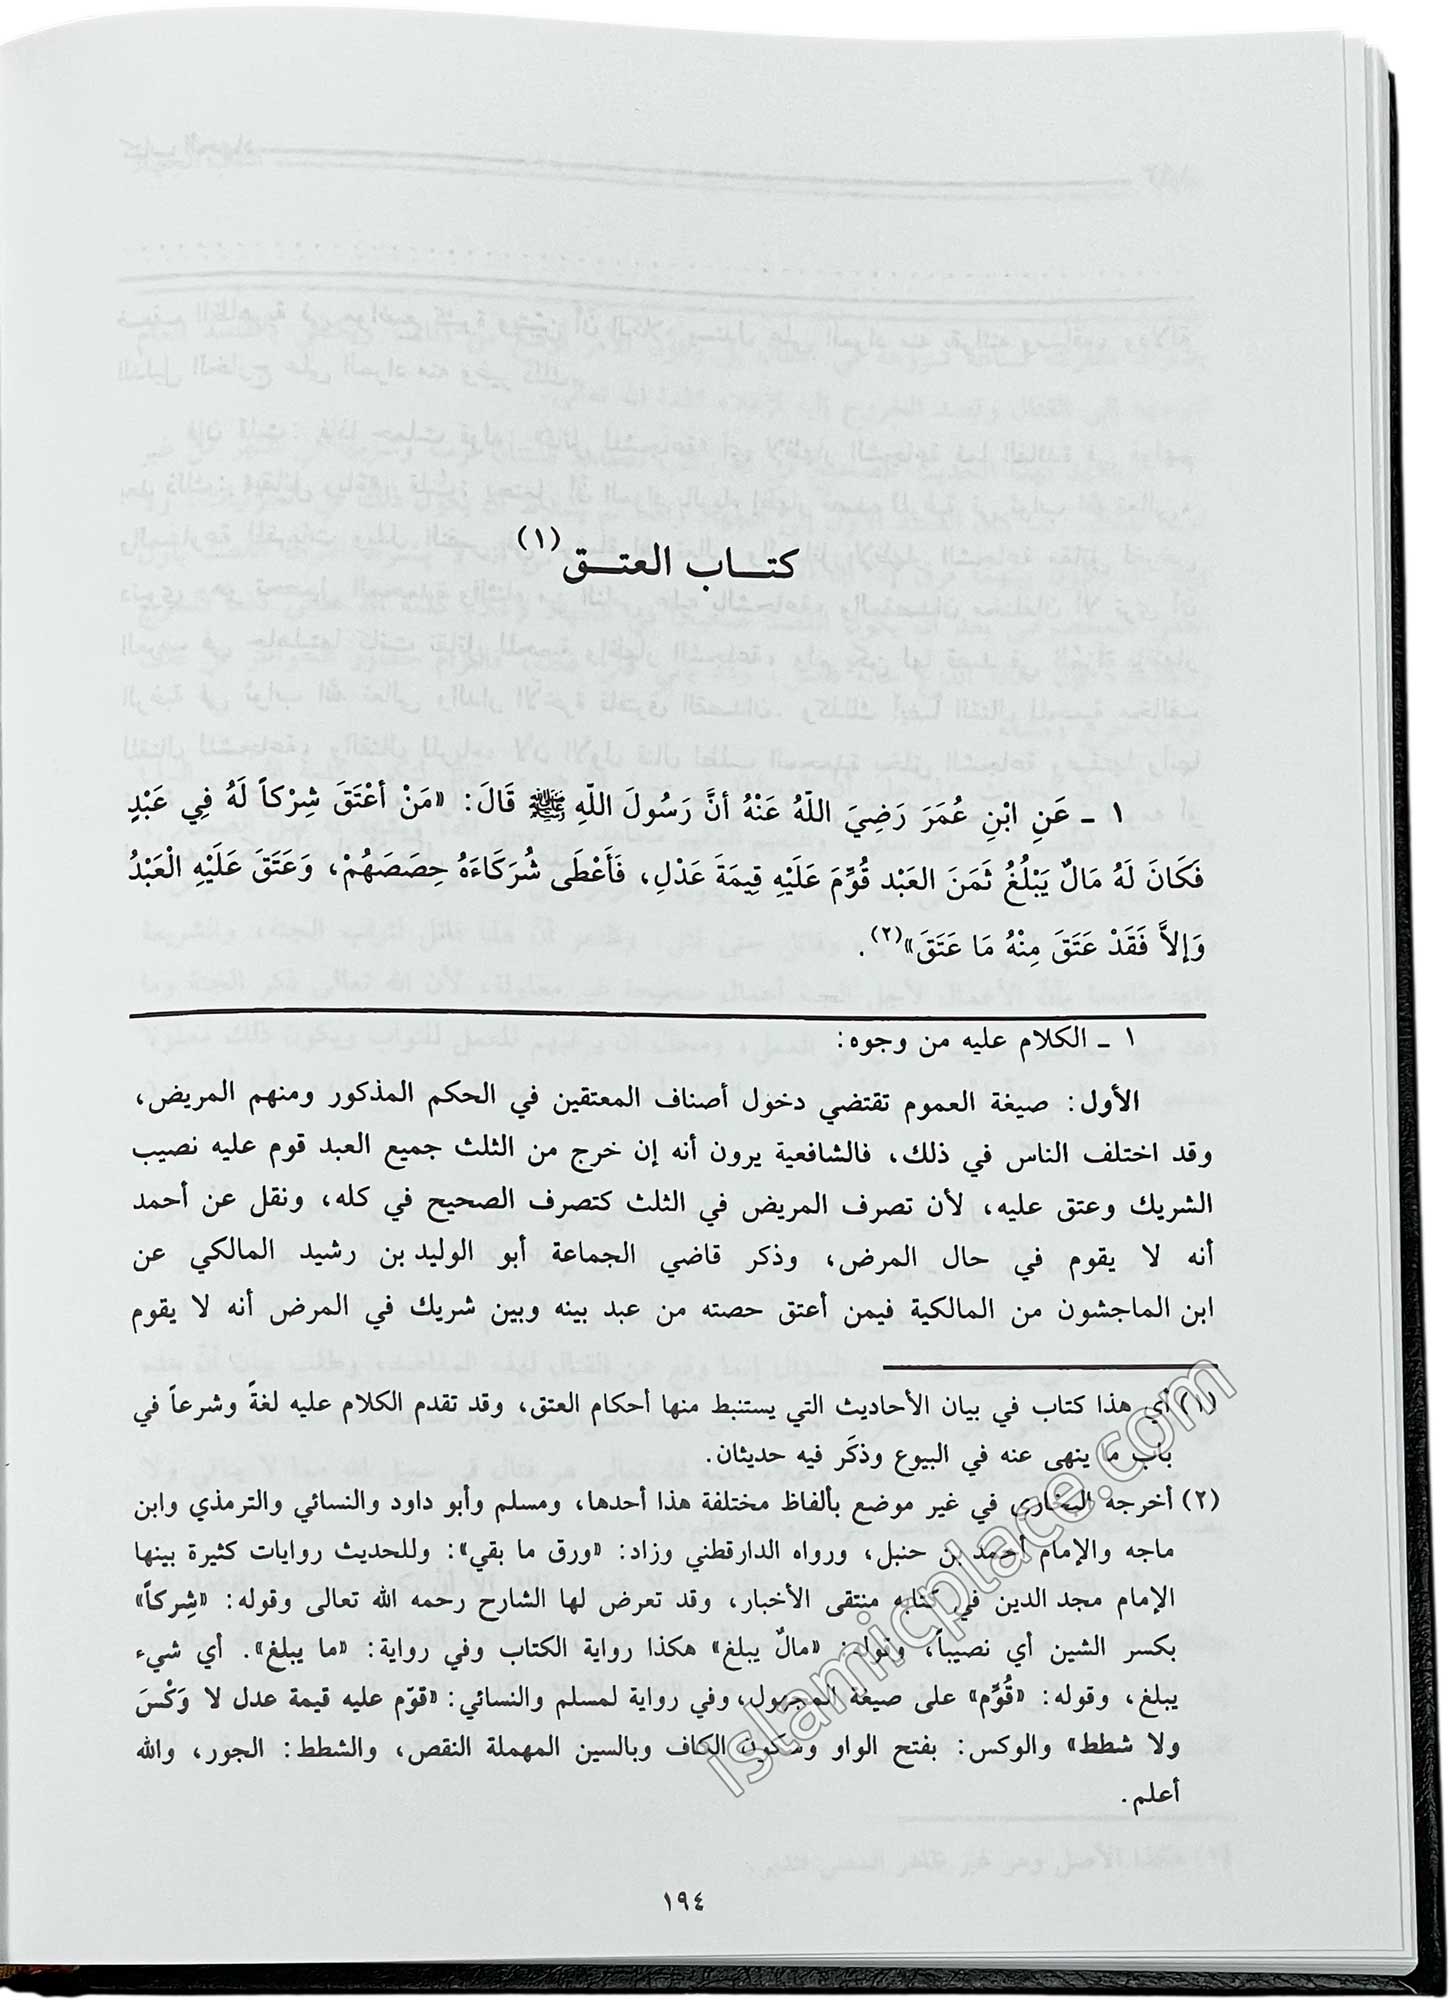 كتـــاب العتـــق(١)
١ ـ عَنِ ابْنِ عُمَرَ رَضِيَ اللّهُ عَنْهُ أنَّ رَسُولَ اللّهِ ﷺ قَالَ: «مَنْ أعْتَقَ شِرْكاً لَهُ فِي عَبْدٍ
فَكَانَ لَهُ مَالٌ يَبْلُغُ ثَمَنَ العَبْد قُوِّمَ عَلَيْهِ قِيمَةَ عَدْلٍ، فَأَعْطَى شُرَكَاءَهُ حِصَصَهُمْ، وَعَتَقَ عَلَيْهِ الْعَبْدُ
وَإلاَّ فَقَدْ عَتَقَ مِنْهُ مَا عَتَقَ»(٢).
١ ـ الكلام عليه من وجوه:
الأول: صيغة العموم تقتضي دخول أصناف المعتقين في الحكم المذكور ومنهم المريض،
وقد اختلف الناس في ذلك، فالشافعية يرون أنه إن خرج من الثلث جميع العبد قوم عليه نصيب
الشريك وعتق عليه، لأن تصرف المريض في الثلث كتصرف الصحيح في كله، ونقل عن أحمد
أنه لا يقوم في حال المرض، وذكر قاضي الجماعة أبو الوليد بن رشيد المالكي عن
ابن الماجشون من المالكية فيمن أعتق حصته من عبد بينه وبين شريك في المرض أنه لا يقوم
(١) أي هذا كتاب في بيان الأحاديث التي يستنبط منها أحكام العتق، وقد تقدم الكلام عليه لغةً وشرعاً في
باب ما ينهى عنه في البيوع وذكَر فيه حديثان.
(٢) أخرجه البخاري في غير موضع بألفاظ مختلفة هذا أحدها، ومسلم وأبو داود والنسائي والترمذي وابن
ماجه والإمام أحمد بن حنبل، ورواه الدارقطني وزاد: «ورق ما بقي»: وللحديث روايات كثيرة بينها
الإمام مجد الدين في كتابه منتقى الأخبار، وقد تعرض لها الشارح رحمه الله تعالى وقوله: «شِركاً»
بكسر الشين أي نصيباً، وقوله: «مالٌ يبلغ» هكذا رواية الكتاب وفي رواية: «ما يبلغ». أي شيء
يبلغ، وقوله: «قُوِّم» على صيغة المجهول، وفي رواية لمسلم والنسائي: «قوّم عليه قيمة عدل لا وَكْسَ
ولا شطط» والوكس: بفتح الواو وسكون الكاف وبالسين المهملة النقص، والشطط: الجور، والله
أعلم.
islamicplace.com
١٩٤